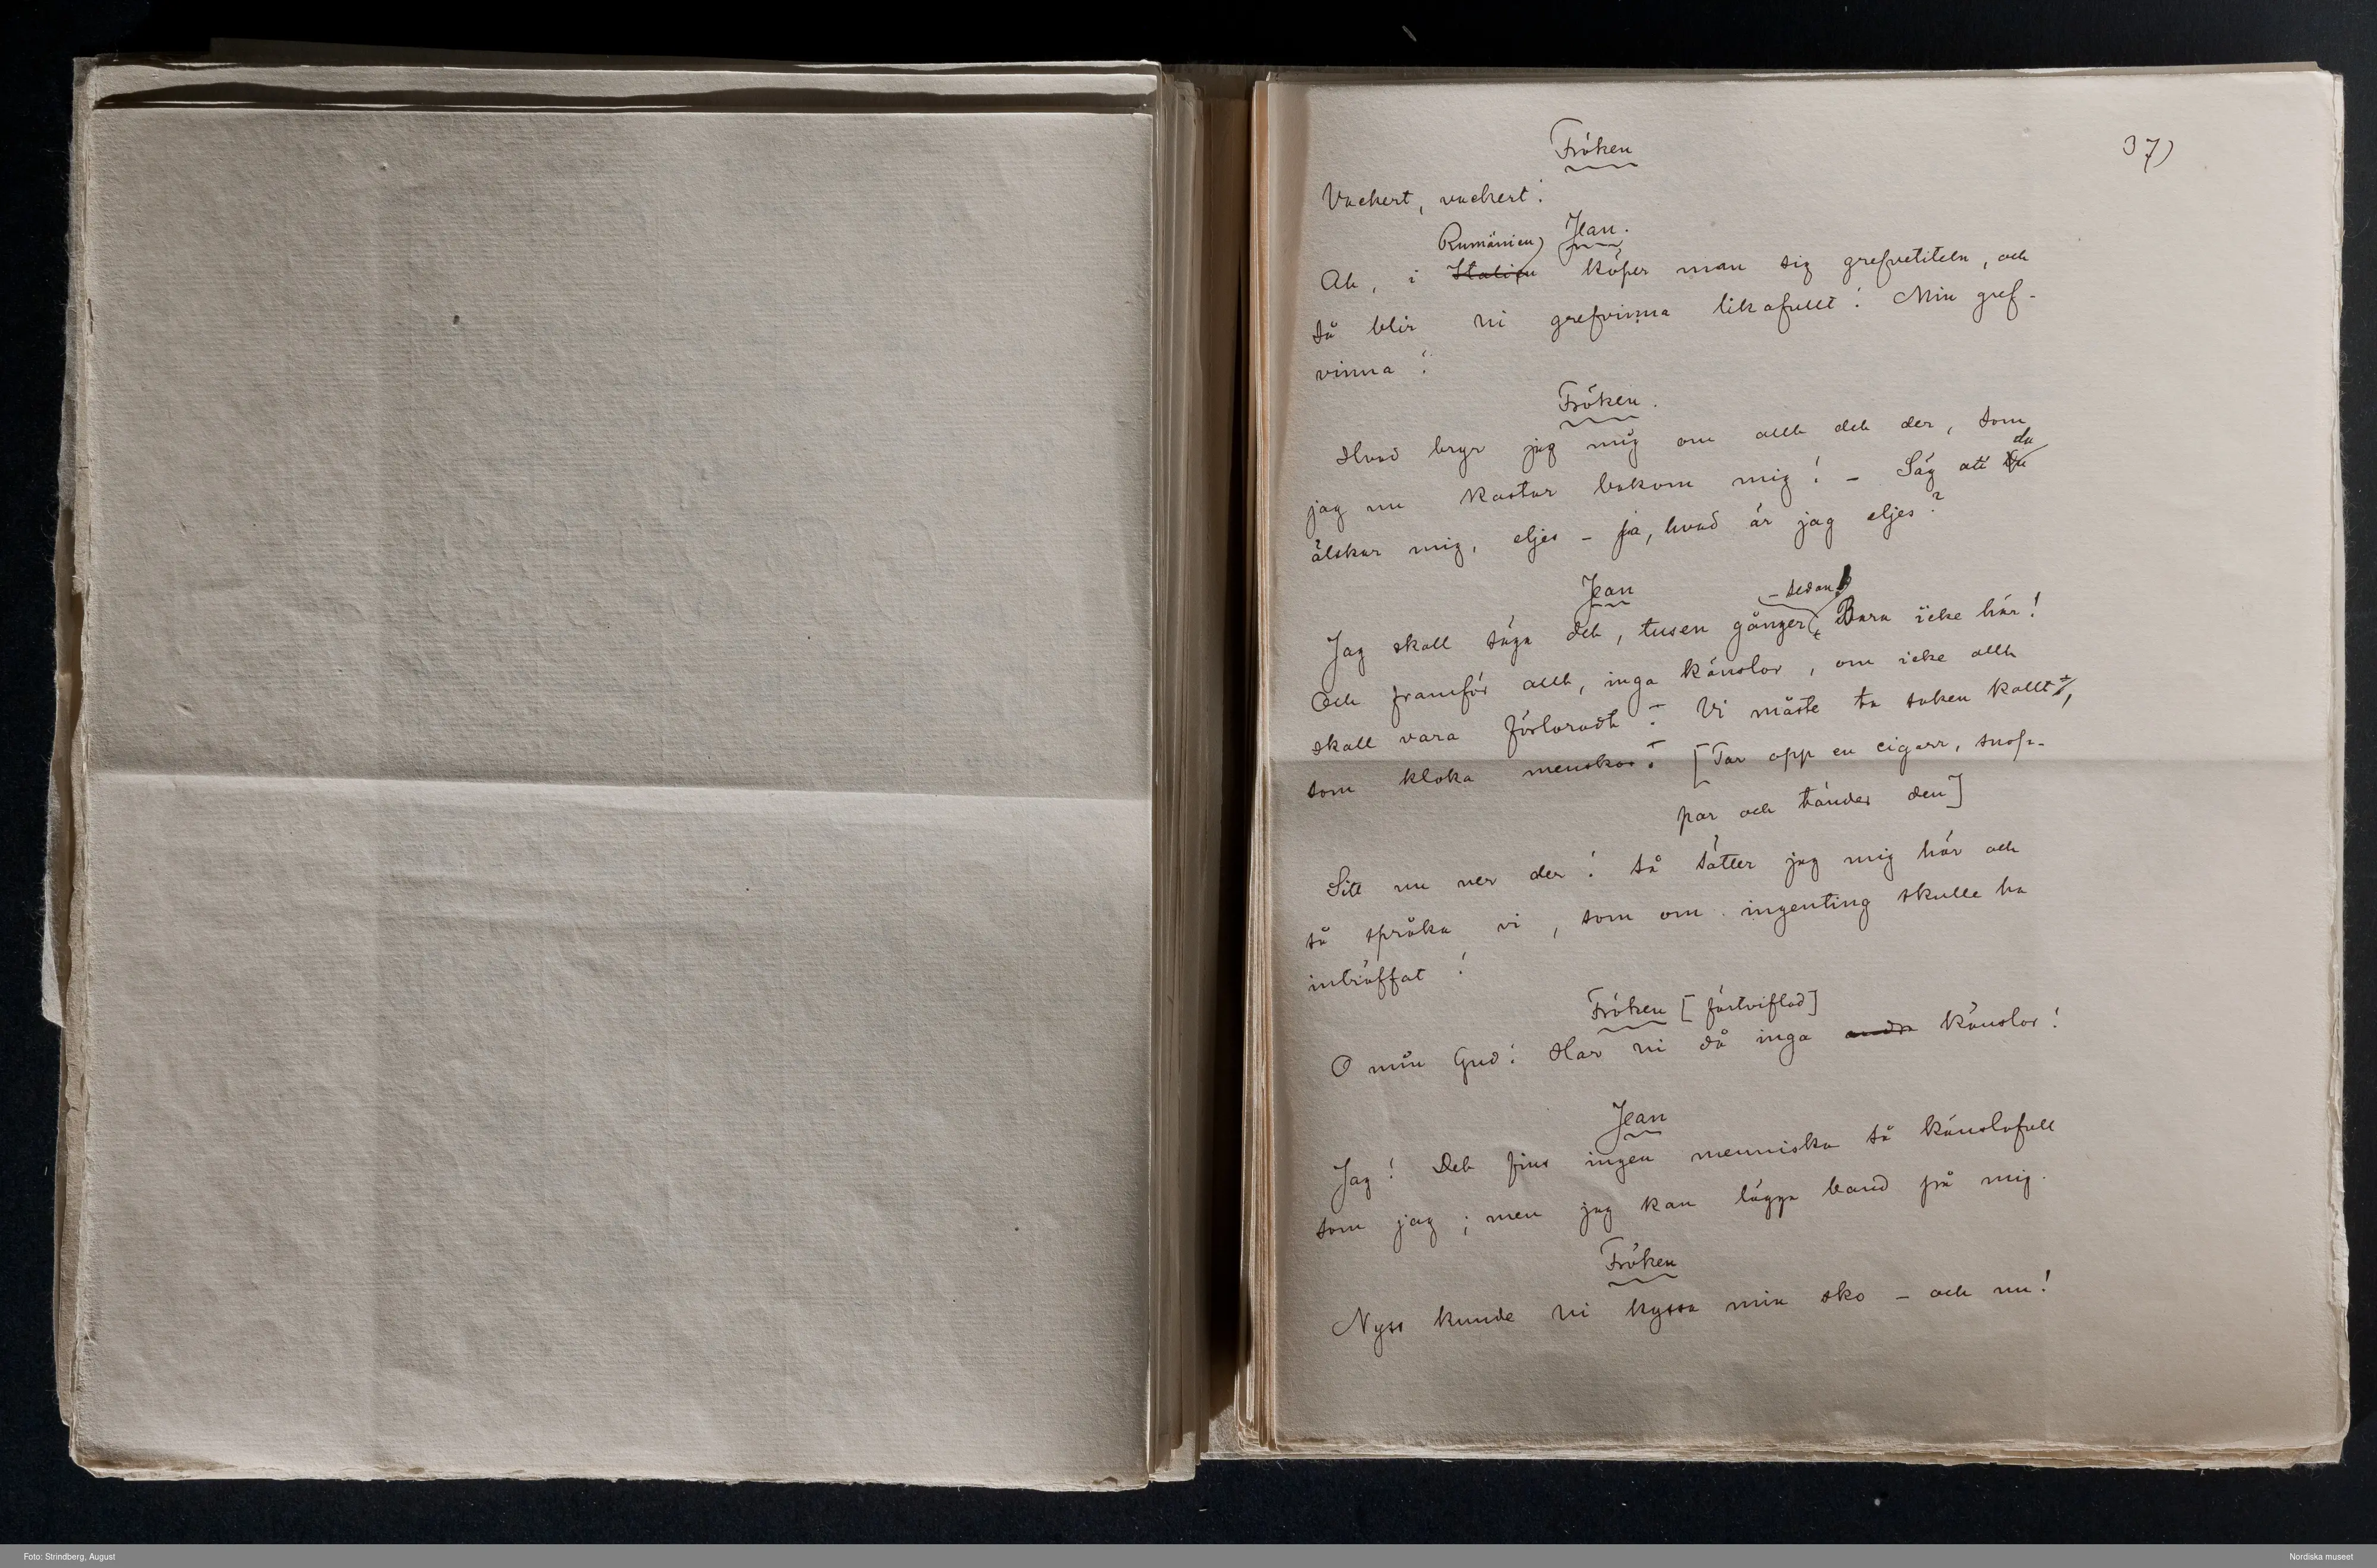 37)
Fröken
Vackert, vackert!
Jean.
Rumänien)
Ah, i Italien köper man sig grefvetiteln, och
så blir ni grefvinna likafullt! Min gref-
vinna!
Fröken.
Hvad bryr jag mig om allt det der, som
du
jag nu kastar bakom mig! – Säg att
älskar mig, eljes – ja, hvad är jag eljes?
Jean
– sedan!
Jag skall säga det, tusen gånger Bara icke här!
Och framför allt, inga känslor, om icke allt
skall vara förloradt! Vi måste ta saken kallt,
som kloka menskor! [Tar opp en cigarr, snop-
par och tänder den]
Sitt nu ner der! så sätter jag mig här och
så språka vi, som om ingenting skulle ha
inträffat!
Fröken [förtviflad]
O min Gud! Har ni då inga andra känslor!
Jean
Jag! Det fins ingen menniska så känslofull
som jag; men jag kan lägga band på mig.
Fröken
Nyss kunde ni kyssa min sko – och nu!
Foto: Strindberg, August
Nordiska museet